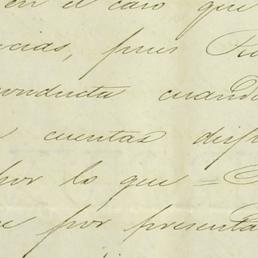 en el caso que
cias, pues
conducta cuando
cuentas
por lo que =
por presenta